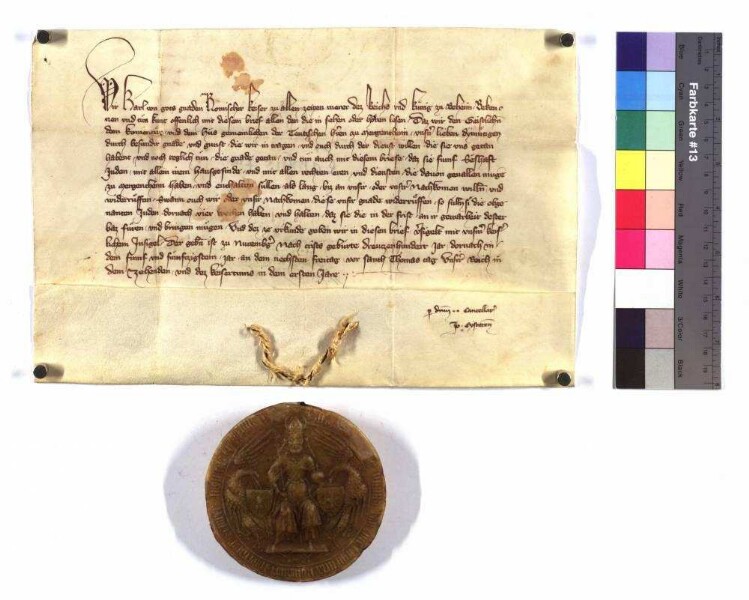 Wir Karl von gots gnaden Romischer keiser zu allen zeiten merer des Reichs und kunig zu Beheim Beken
nen und tun kunt offenlich mit diesem brief allen den die in sehen oder horen lesen Daz wir den Geistlichen
dem kummentur und dem Hus gemeinlichen der Teutschen hern zu Mergentheim unsern lieben dymutigen
durch besunder gnade und gunst die wir in tragen und euch durch der dienst willen die sie uns getan
habent und noch teglich tun die gnade getan und tun auch mit diesem briefe daz sie funf
Juden mit allem irem hausgesinde und mit allen und diensten die davon gevallen muge
zu mergentheim haben und sullen als lang biz an unser oder unser Nachkomen willen und
widerruffen Swenn auch wir oder unser Nachkomen diese unser gnade widerruffen so sullen si die obge
nanten Juden dornach vier haben und halten daz sie die in der frist an ir gewarheit dester
baz furen und bringen mugen Und des ze urkunde geben wir in diesen brief versigelt mit unserm keiser
lichem Insigel Der geben ist zu Nuremberg Nach crists geburte dreuzenhundert jar dornach in
dem funf und funfzigstem jar an dem nechsten freitag vor sand Thomas tag Unser Reich in
dem Czehenden und des keisertums in dem ersten Jare
p dnm Cancellar
Jo Eystetten
Farbkarte #13
Blue
Cyan
Green
Yellow
Red
Magenta
White
3/Color
Black
Centimetres